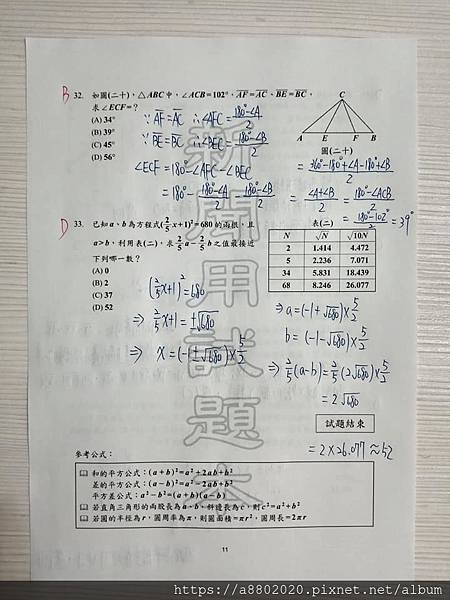 B 32. 如圖(二十)，△ABC中，∠ACB=102°，AF=AC、BE=BC，
求∠ECF=？
(A) 34°
(B) 39°
(C) 45°
(D) 56°
∵ AF=AC ∴∠AFC=(180°-∠A)/2
∵ BE=BC ∴∠BEC=(180°-∠B)/2
∠ECF=180°-∠AFC-∠BEC
=180°-(180°-∠A)/2-(180°-∠B)/2
C
A E F B
圖(二十)
=(360°-180°+∠A-180°+∠B)/2
=(∠A+∠B)/2=(180°-∠ACB)/2
=(180°-102°)/2=39°
D 33. 已知a、b為方程式(2/5x+1)²=680的兩根，且
a>b，利用表(二)，求2/5a-2/5b之值最接近
下列哪一數？
(A) 0
(B) 2
(C) 37
(D) 52
表(二)
N √N √10N
2 1.414 4.472
5 2.236 7.071
34 5.831 18.439
68 8.246 26.077
(2/5x+1)²=680
⇒ 2/5x+1=±√680
⇒ x=(-1±√680)×5/2
⇒ a=(-1+√680)×5/2
b=(-1-√680)×5/2
⇒ 2/5(a-b)=2/5(2√680)×5/2
=2√680
=2×26.077≈52
試題結束
參考公式：
和的平方公式：(a+b)²=a²+2ab+b²
差的平方公式：(a-b)²=a²-2ab+b²
平方差公式：a²-b²=(a+b)(a-b)
若直角三角形的兩股長為a、b，斜邊長為c，則c²=a²+b²
若圓的半徑為r，圓周率為π，則圓面積=πr²，圓周長=2πr
新聞用試題本
11
https://a8802020.pixnet.net/album